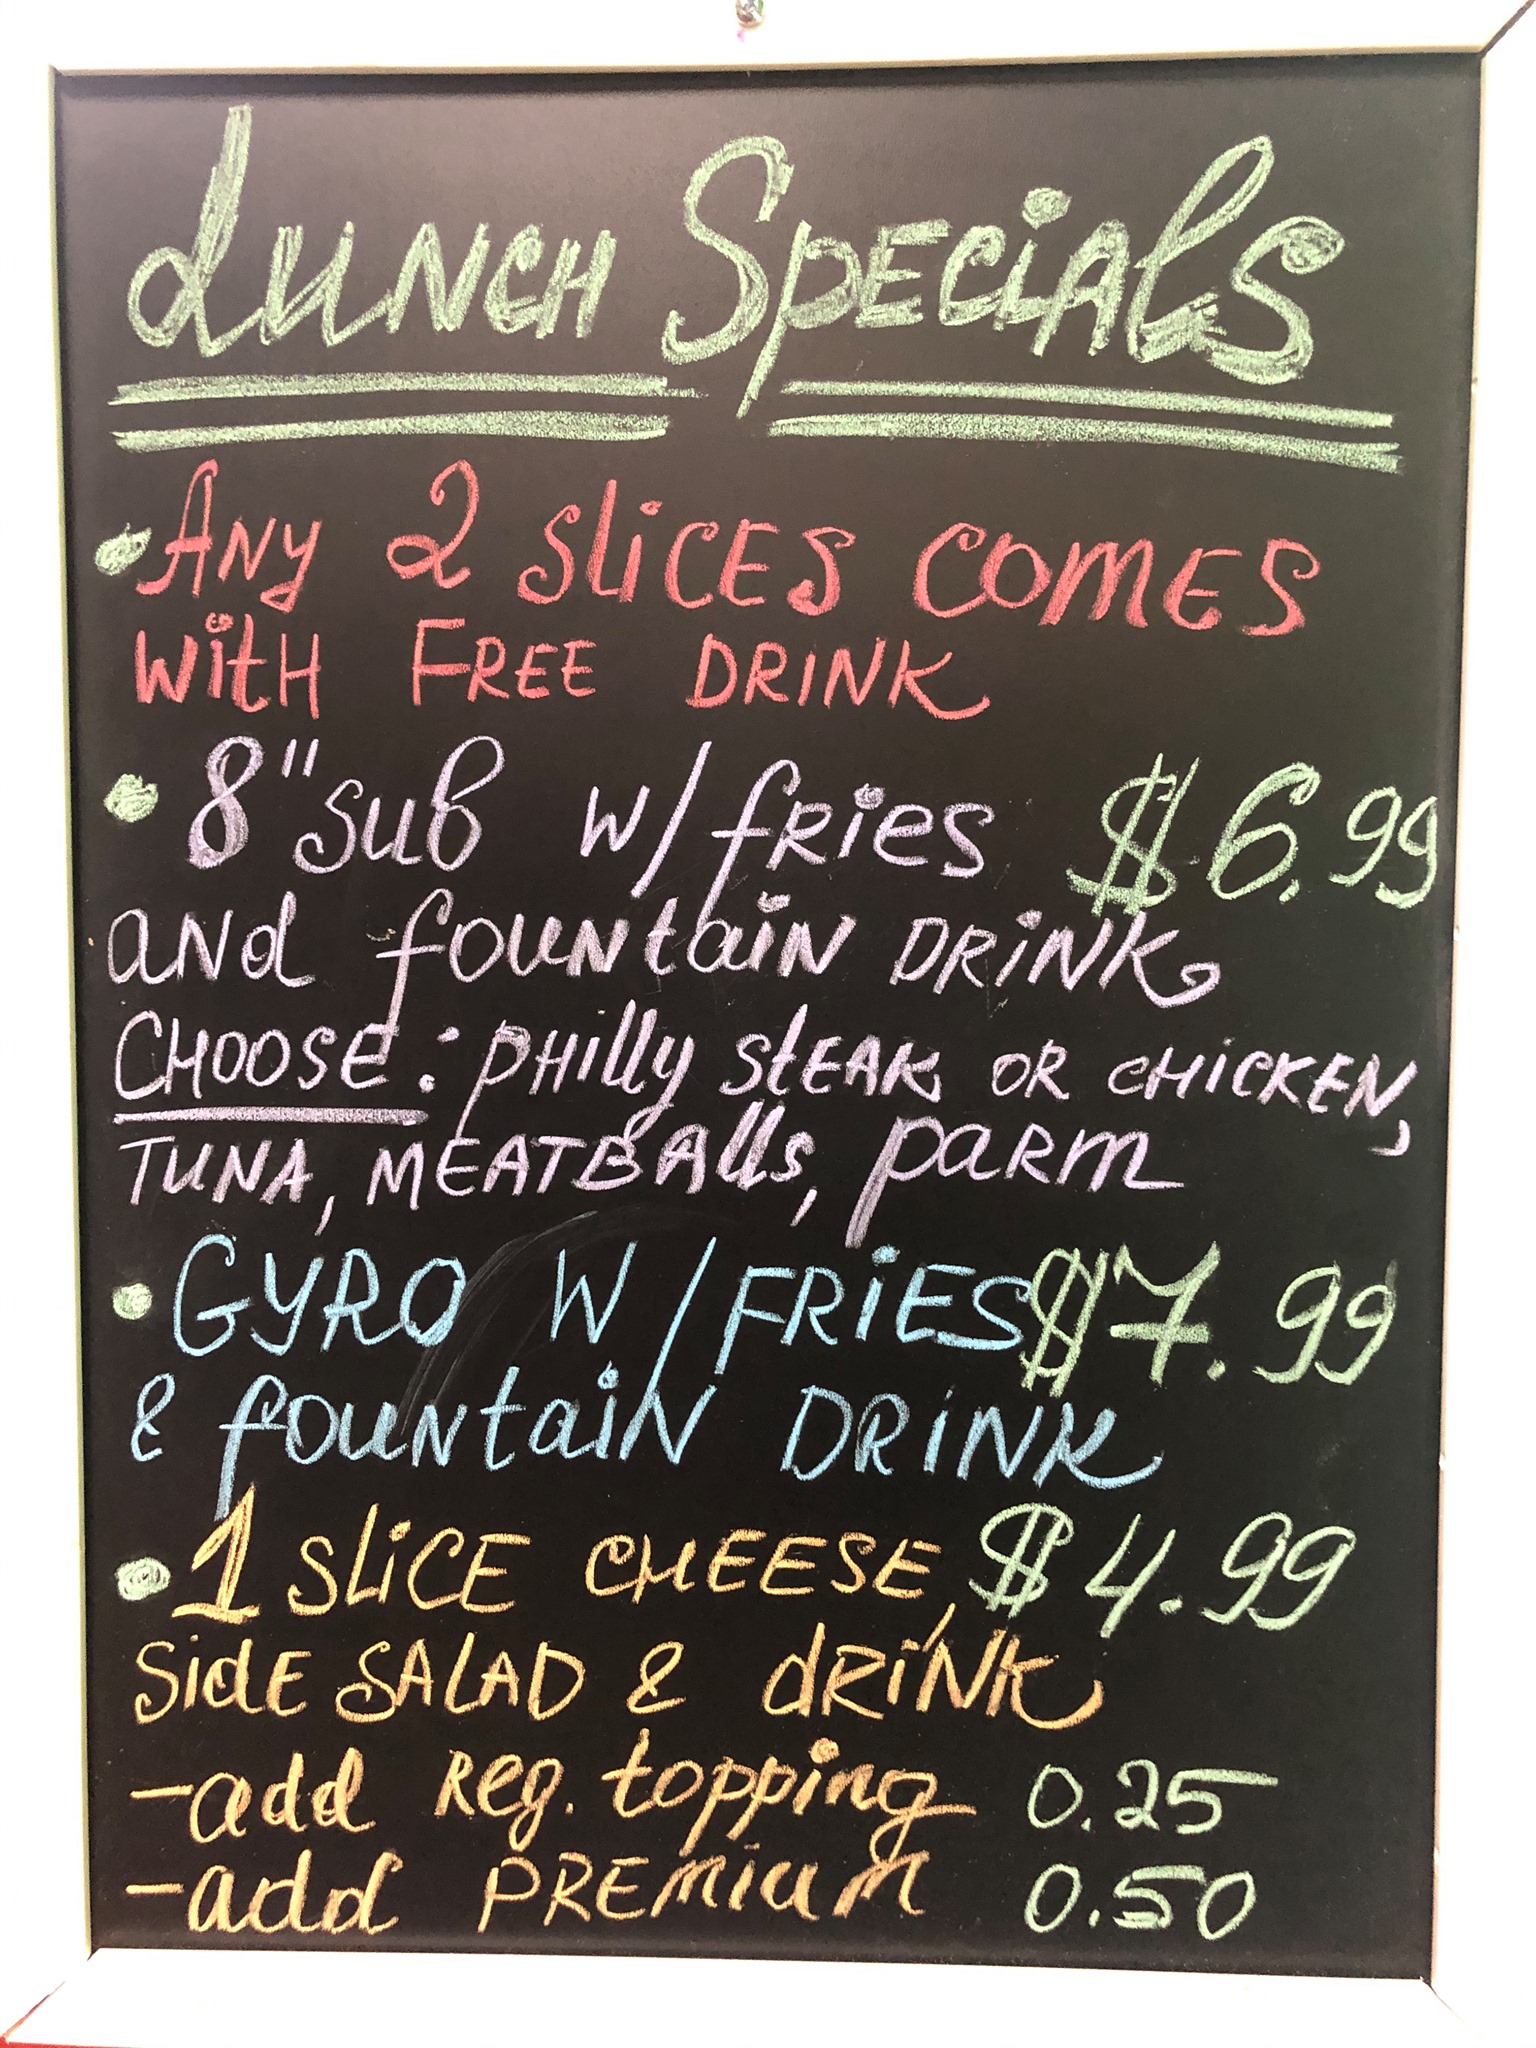 Lunch Specials
• Any 2 slices comes
with Free drink
• 8" sub w/ fries $6.99
and fountain drink
Choose: philly steak or chicken,
tuna, meatballs, parm
• Gyro w/ fries $7.99
& fountain drink
• 1 slice cheese, $4.99
side salad & drink
- add reg. topping 0.25
- add premium 0.50